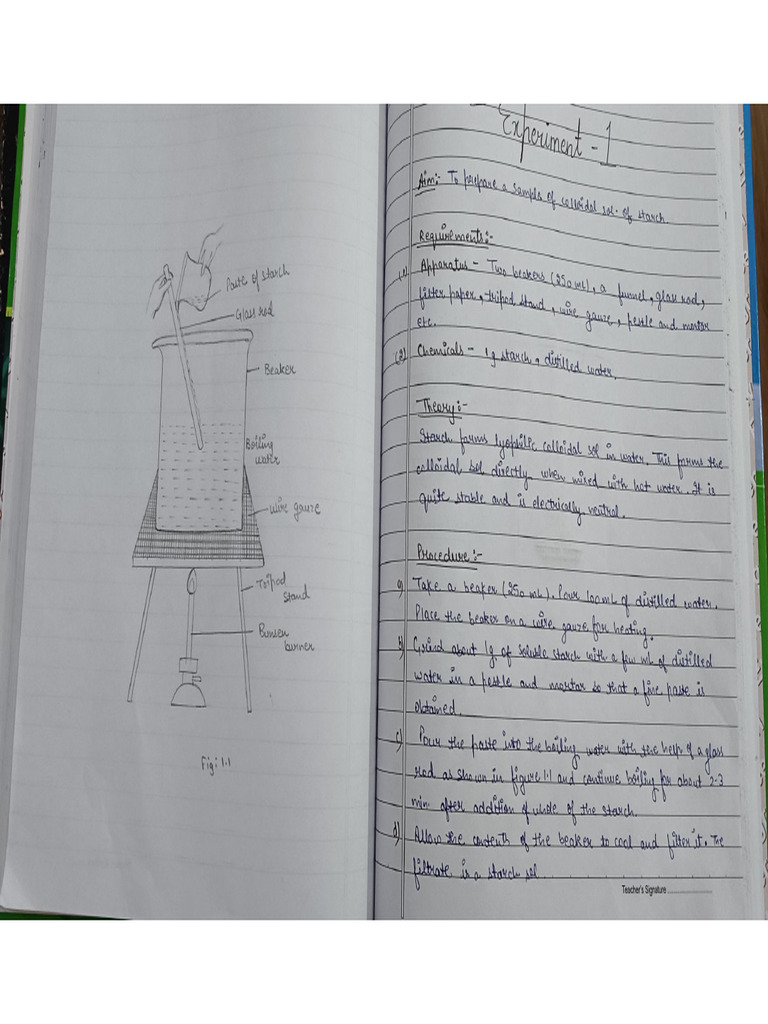 Paste of starch
Glass rod
Beaker
Boiling
water
wire gauze
Tripod
Stand
Bunsen
burner
Fig: 1.1
Experiment - 1
Aim:- To prepare a sample of colloidal sol. of starch.
Requirements:-
(1) Apparatus - Two beakers (250 mL), a funnel, glass rod,
filter paper, tripod stand, wire gauze, pestle and mortar
etc.
(2) Chemicals - 1g starch, distilled water.
Theory:-
Starch forms lyophilic colloidal sol in water. This forms the
colloidal sol directly when mixed with hot water. It is
quite stable and is electrically neutral.
Procedure:-
a) Take a beaker (250 mL). Pour 100mL of distilled water.
Place the beaker on a wire gauze for heating.
b) Grind about 1g of soluble starch with a few mL of distilled
water in a pestle and mortar so that a fine paste is
obtained.
c) Pour the paste into the boiling water with the help of a glass
rod as shown in figure 1.1 and continue boiling for about 2-3
min after addition of whole of the starch.
d) Allow the contents of the beaker to cool and filter it. The
filtrate is a starch sol
Teacher's Signature